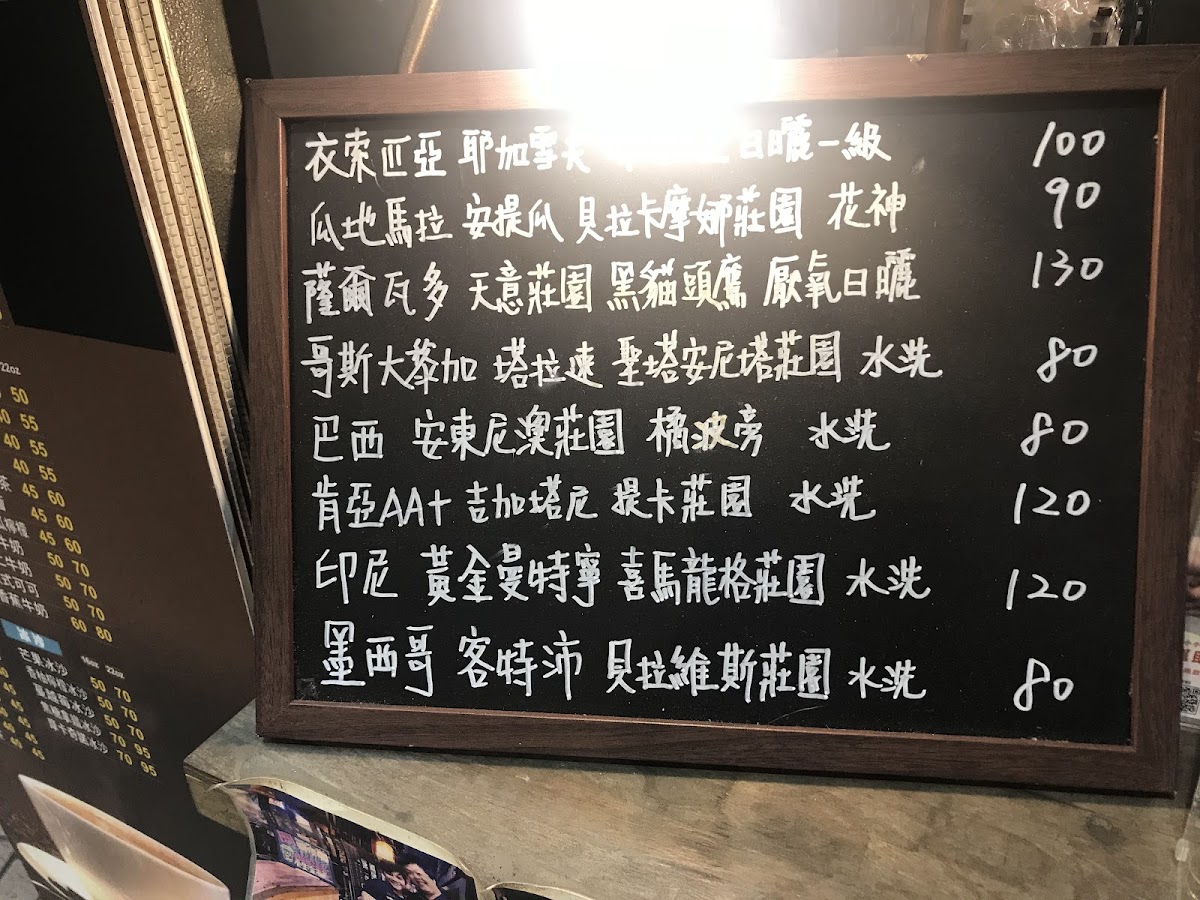 衣索匹亞 耶加雪夫 日曬一級 100
瓜地馬拉 安提瓜 貝拉卡摩娜莊園 花神 90
薩爾瓦多 天意莊園 黑貓頭鷹 厭氧日曬 130
哥斯大黎加 塔拉速 聖塔安尼塔莊園 水洗 80
巴西 安東尼澳莊園 橘波旁 水洗 80
肯亞AA+ 吉加塔尼 提卡莊園 水洗 120
印尼 黃金曼特寧 喜馬龍格莊園 水洗 120
墨西哥 客特沛 貝拉維斯莊園 水洗 80
22oz
50
50 55
40 55
40 55
45 60
45 60
45 60
牛奶 50 70
牛奶 50 70
式可可 50 70
香蕉牛奶 60 80
16oz 22oz
芒果冰沙 50 70
冰沙 50 70
冰沙 50 70
冰沙 70 95
冰沙 70 95